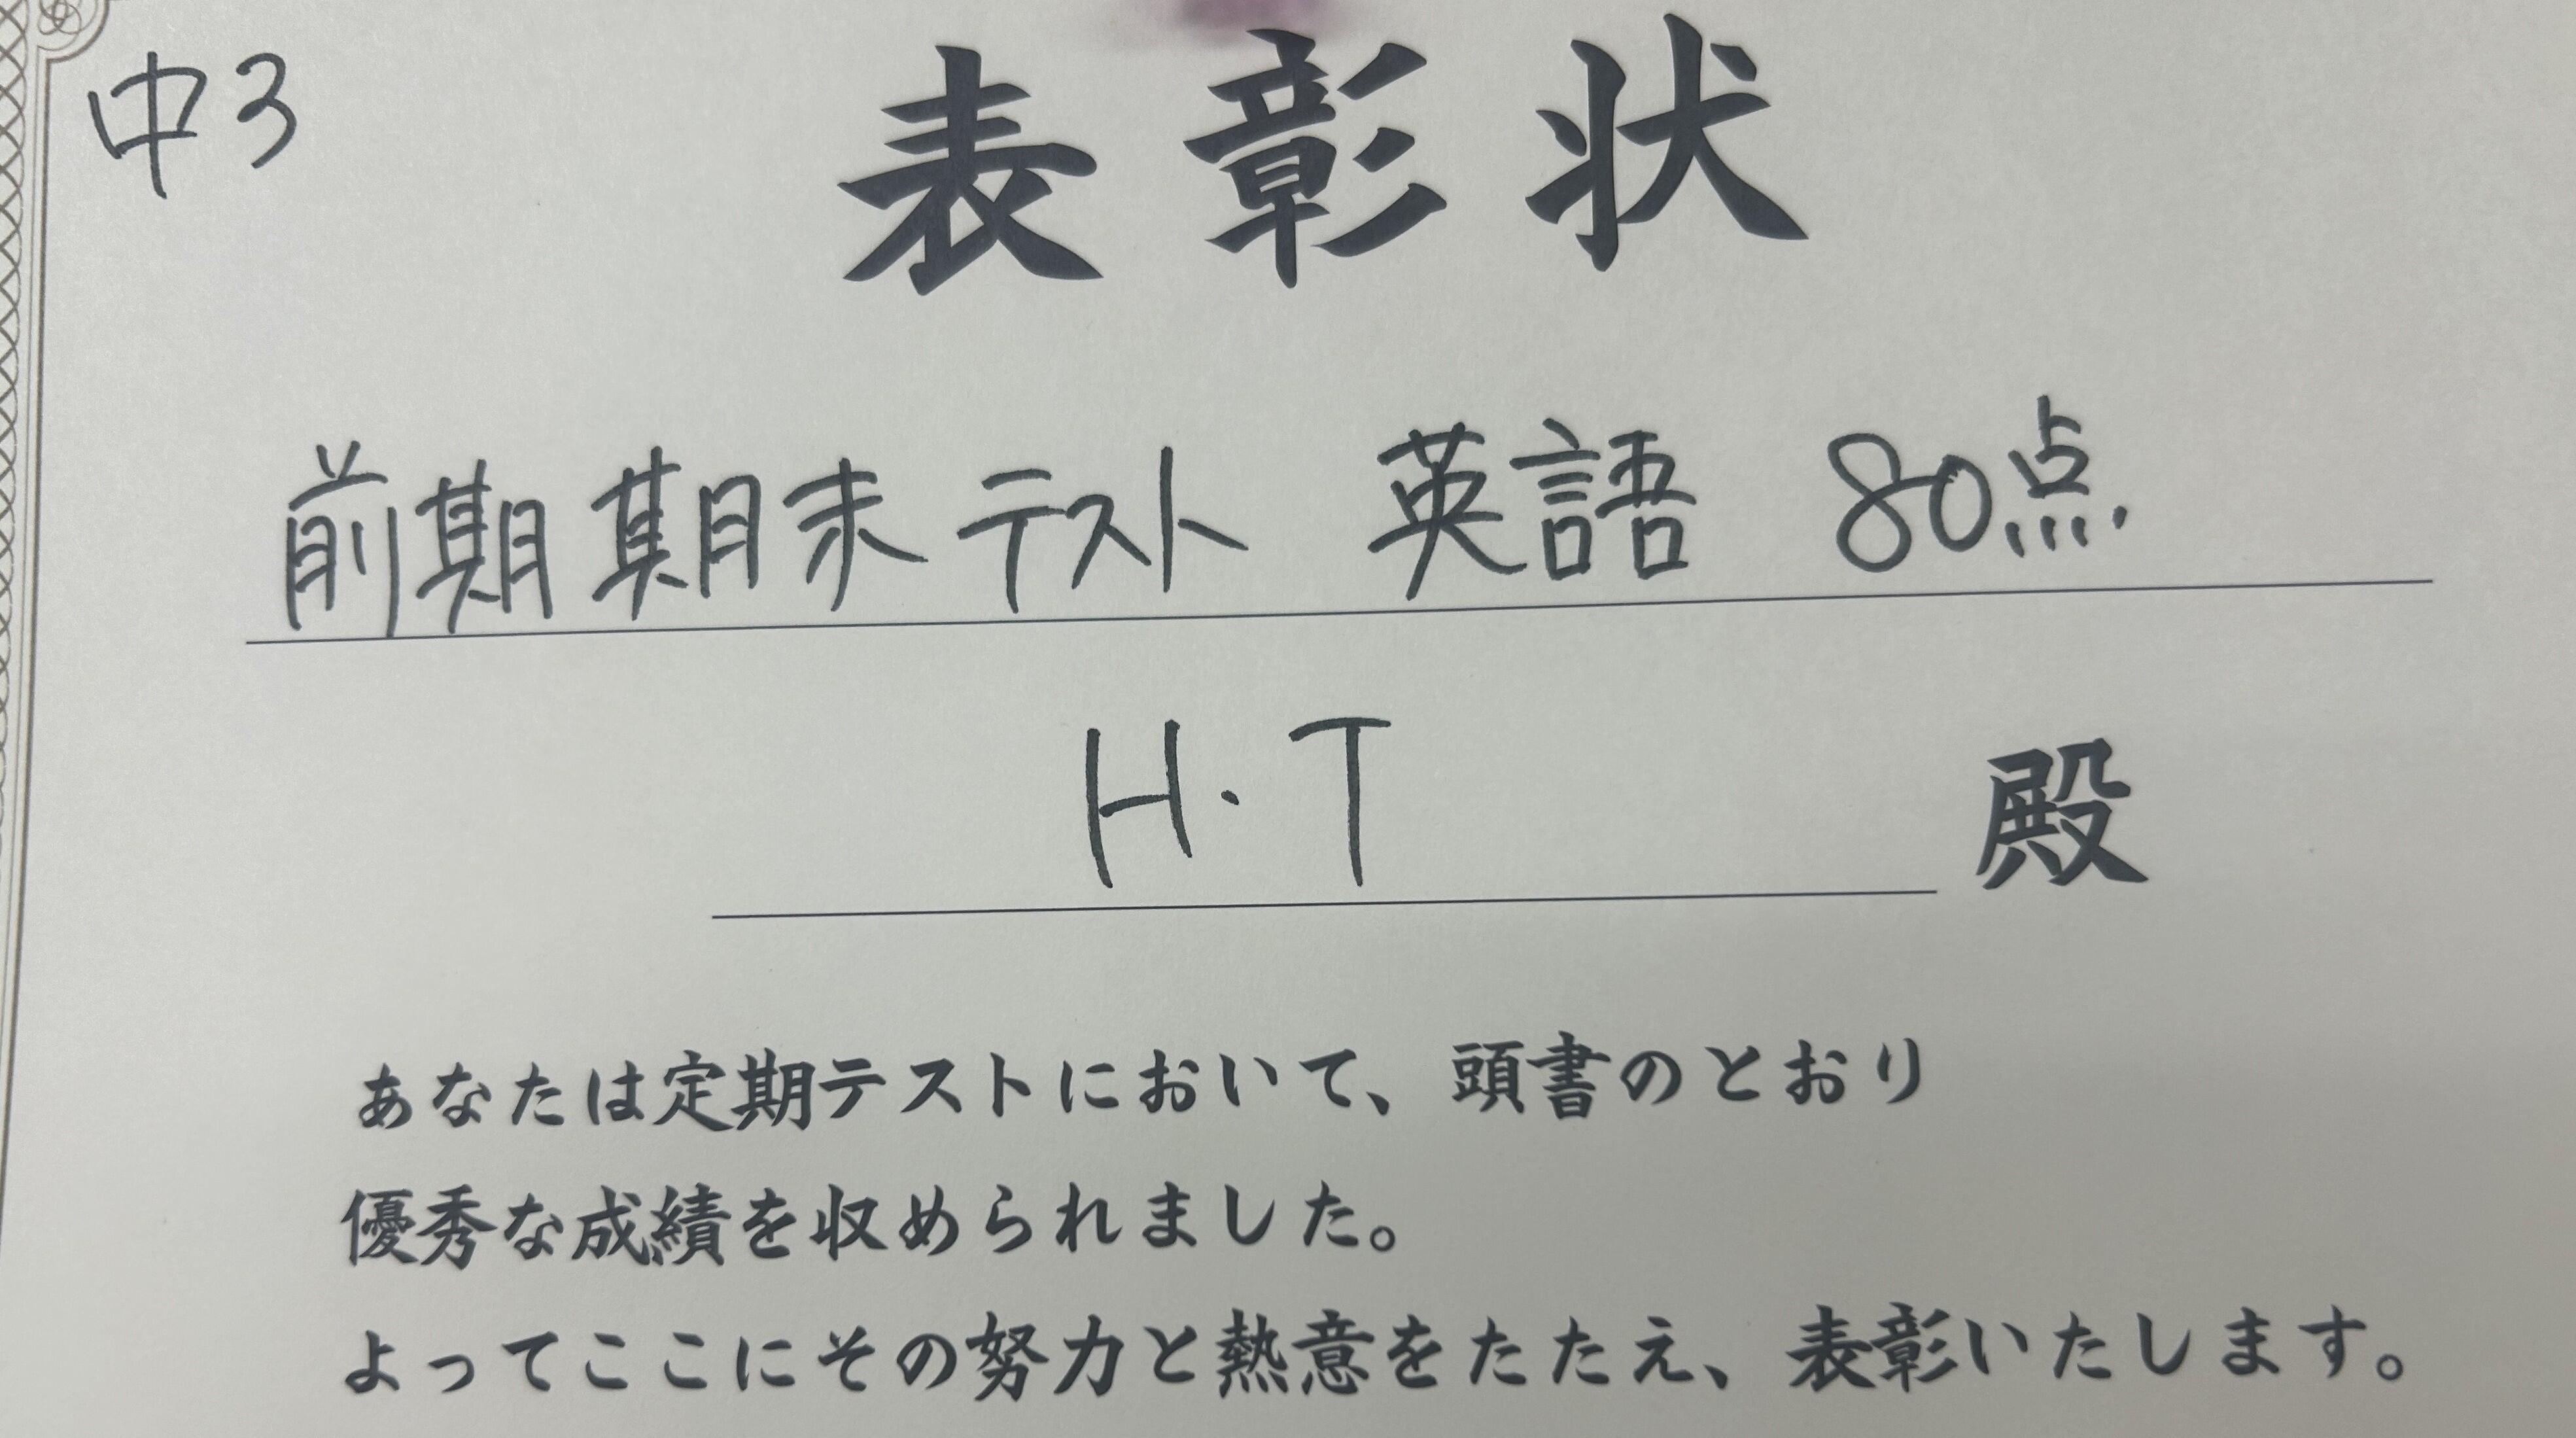 中3
表彰状
前期期末テスト 英語 80点
H・T 殿
あなたは定期テストにおいて、頭書のとおり
優秀な成績を収められました。
よってここにその努力と熱意をたたえ、表彰いたします。